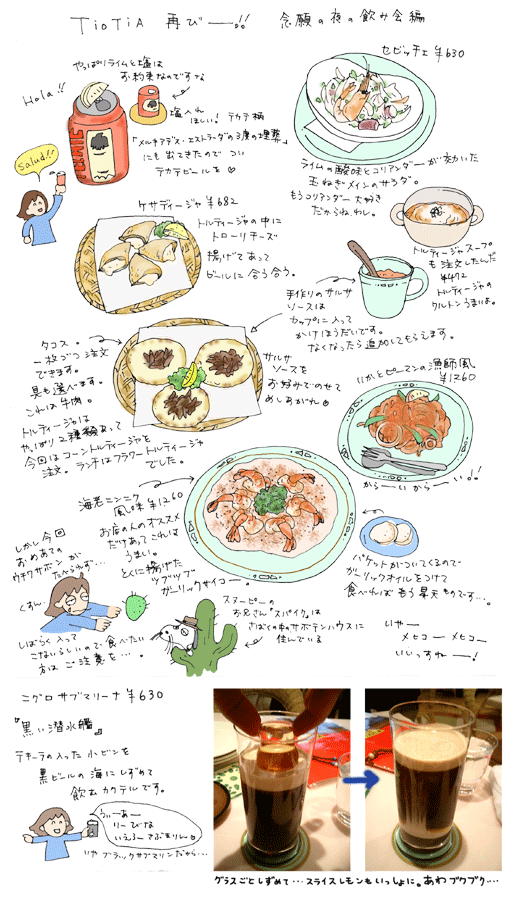 TioTiA 再びー!! 念願の夜の飲み会編
Hola!!
やっぱりライムと塩は
お約束なのですな
塩入れ
ほしい! テカテ柄
「メルキアデス・エストラーダの3度の埋葬」
にも出てきたので つい
テカテビールを
Salud!!
セビッチェ ¥630
ライムの酸味とコリアンダーが効いた
玉ねぎメインのサラダ。
もうコリアンダー大好き
だからね、わし。
ケサディージャ ¥682
トルティージャの中に
トローリチーズ
揚げてあって
ビールに合う合う。
トルティージャスープ
も注文したんだ
¥472
トルティージャの
クルトンうまいよ。
手作りのサルサ
ソースは
カップに入って
かけほうだいです。
なくなったら追加してもらえます。
タコス。
一枚ごつ注文
できます。
具も選べます。
これは牛肉。
トルティージャは
やっぱり2種類あって
今回はコーントルティージャを
注文。ランチはフラワートルティージャ
でした。
サルサ
ソースを
お好みでのせて
めしあがれ
いかとピーマンの漁師風
¥1260
からーいからーい。!
海老ニンニク
風味 ¥1260
お店の人のオススメ
だけあってこれは
うまい。
とくに揚げた
ツブツブ
ガーリックサイコー。
バケットがついてくるので
ガーリックオイルをつけて
食べればもう昇天ものです…。
しかし今回
おめあての
ウチワサボンが
たべられず…
くすん。
しばらく入って
こないらしいので食べたい
方はご注意を…。
スヌーピーの
お兄さん"スパイク"は
さばくの中のサボテンハウスに
住んでいる
いやー
メヒコー メヒコー
いいっすねー!
ニグロ サブマリーナ ¥630
『黒い潜水艦』
テキーラの入った小ビンを
黒ビールの海にしずめて
飲むカクテルです。
うぃーあー
りーびな
いえろーさぶまりん
いや ブラックサブマリンだから…
グラスごとしずめて…スライスレモンもいっしょに。あわ ブクブク…